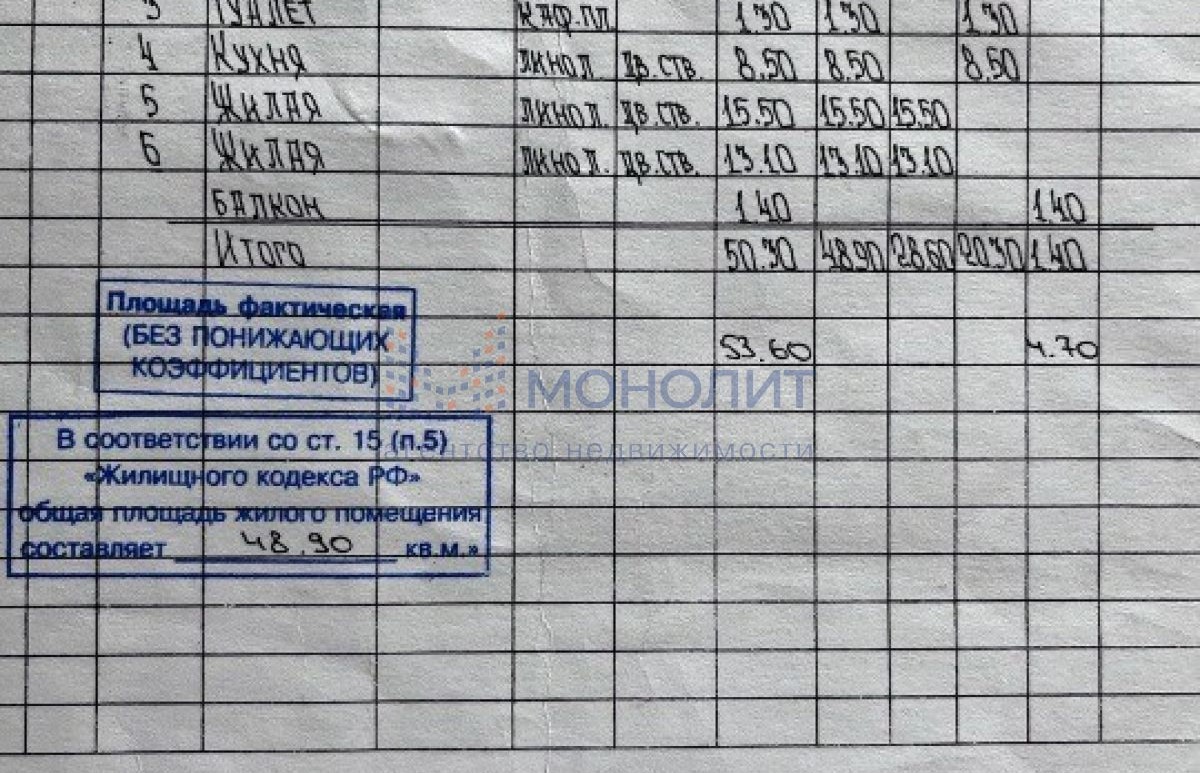 3 Туалет каф.пл. 1.30 1.30 1.30
4 Кухня линол. дв.ств. 8.50 8.50 8.50
5 Жилая линол. дв.ств. 15.50 15.50 15.50
6 Жилая линол. дв.ств. 13.10 13.10 13.10
Балкон 1.40 1.40
Итого 50.30 48.90 28.60 20.30 1.40
Площадь фактическая
(БЕЗ ПОНИЖАЮЩИХ
КОЭФФИЦИЕНТОВ)
53.60 4.70
МОНОЛИТ
агентство недвижимости
В соответствии со ст. 15 (п.5)
«Жилищного кодекса РФ»
общая площадь жилого помещения
составляет 48.90 кв.м.»